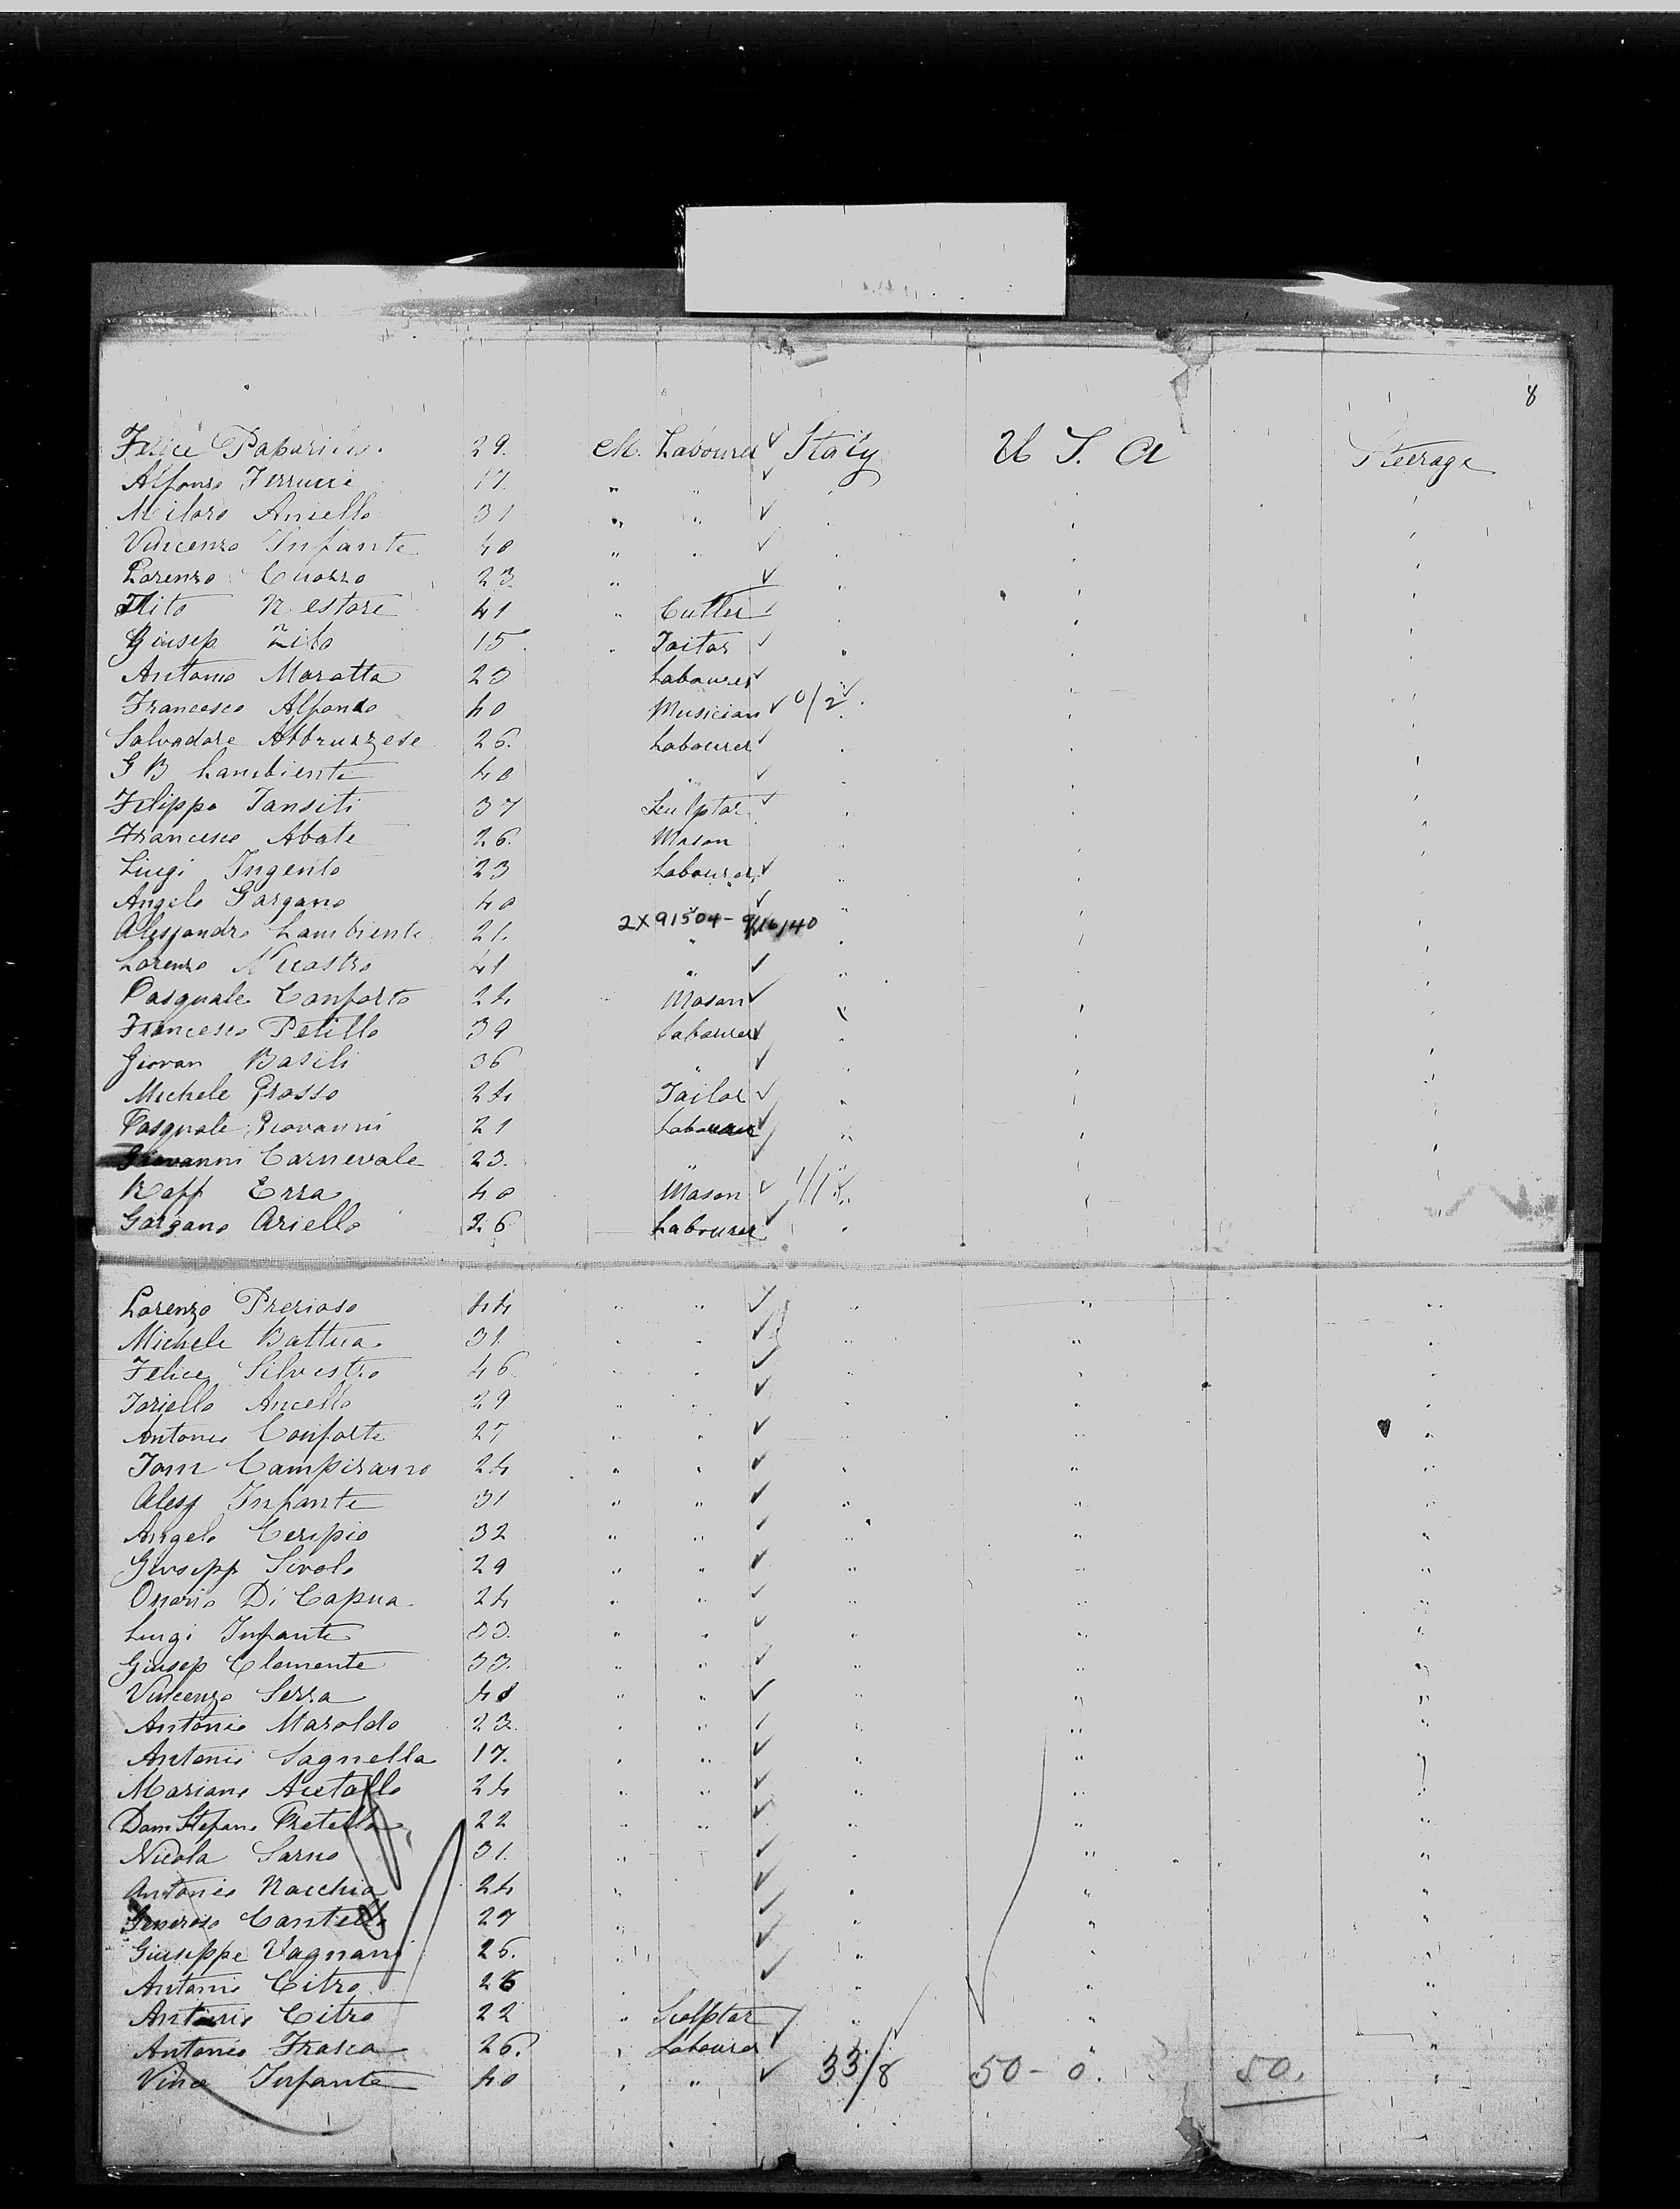 8
Felice Paparisio. 29. M. Labourer ✓ Italy U S. A Steerage
Alfonso Ferrucci 17. " " ✓ "
Miloro Aniello 31 " " ✓ "
Vincenzo Infante 40 " " ✓ "
Lorenzo Cuozzo 23 " ✓ "
Tito Nestore 41 " Cutler ✓ "
Giusep Zito 15 " Tailor ✓ "
Antonio Maratta 23 Labourer ✓ "
Francesco Alfondo 40 Musician ✓ 0/2 ✓ "
Salvadore Abbruzzese 26. Labourer ✓ "
G B Lambiente 40 " ✓ "
Filippo Tansiti 37 Sculptor ✓ "
Francesco Abate 26. Mason "
Luigi Ingento 23 Labourer ✓ "
Angelo Gargano 40 " ✓ "
Alessandro Lambiente 21. 2X91504-9/16/40 " "
Lorenzo Nicastro 41 " ✓ "
Pasquale Conforto 24 Mason ✓ "
Francesco Petillo 39 Labourer ✓ "
Giovan Basili 36 " ✓ "
Michele Grosso 24 Tailor ✓ "
Pasquale Giovanni 21 Labourer ✓ "
Giovanni Carnevale 23. " ✓ "
Raff Erra 40 Mason ✓ 1/1 "
Gargano Ariello 26 Labourer ✓ "
Lorenzo Prezioso 44 " " ✓ " " "
Michele Battua 31 " " ✓ " " "
Felice Silvestro 46 " " ✓ " " "
Toriello Ancello 29 " " ✓ " " "
Antonio Conforte 27 " " ✓ " " "
Tom Campisano 24 " " ✓ " " "
Aless Infante 31 " " ✓ " " "
Angelo Ceripio 32 " " ✓ " " "
Giusepp Sivolo 29 " " ✓ " " "
Onorio Di Capua 24 " " ✓ " " "
Luigi Infante 33. " " ✓ " " "
Giusep Clemente 33. " " ✓ " " "
Vincenzo Serra 40 " " ✓ " " "
Antonio Maroldo 23 " " ✓ " " "
Antonio Sagnella 17. " " ✓ " " "
Mariano Acetollo 24 " " ✓ " " "
Dom Stefano Pretella 22 " " ✓ " " "
Nicola Sarno 31. " " ✓ " " "
Antonio Nacchia 24 " ✓ " " "
Generoso Cantelli 27 " ✓ " " "
Giuseppe Vagnani 26. " ✓ " " "
Antonio Citro 26 " ✓ " " "
Antonio Citro 22 " Sculptor ✓ " " "
Antonio Frasca 26. " Labourer ✓ " " "
Vince Infante 40 " " ✓ 33/8 50-0. 50. "